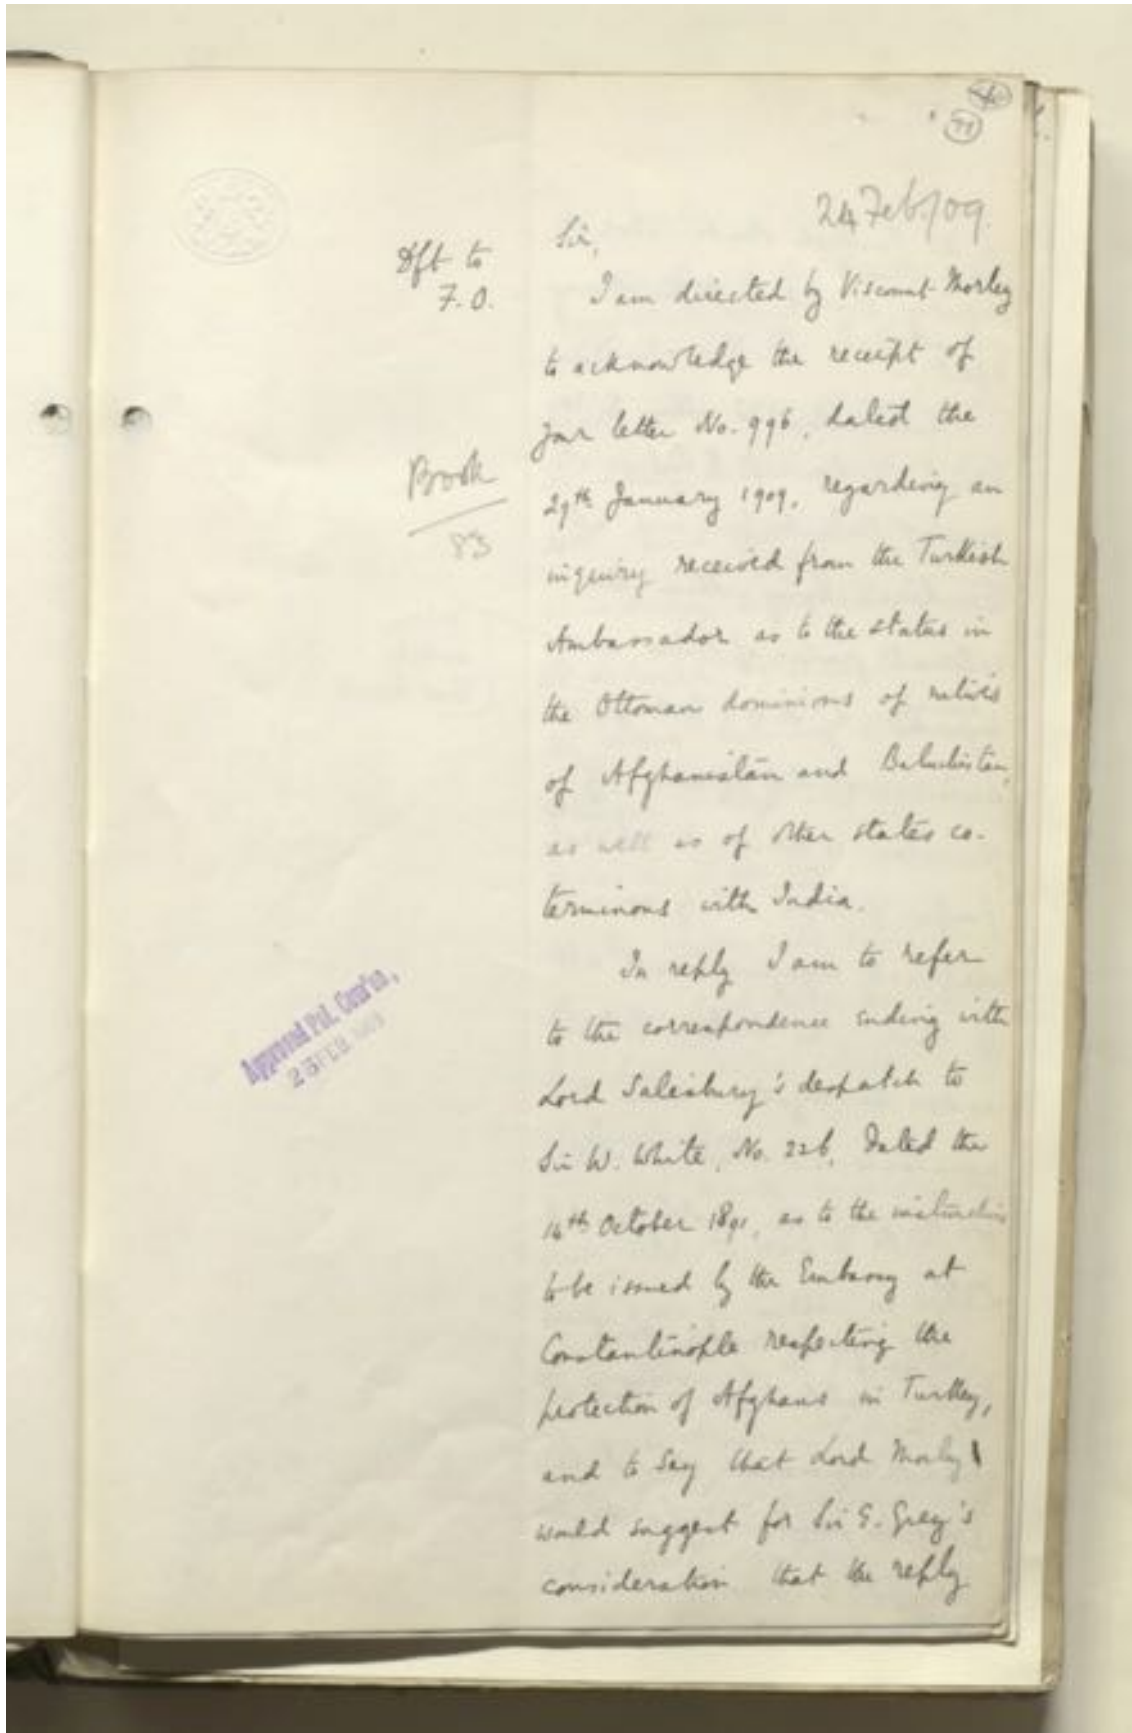 24 Feb/09.
Dft to
F.O.
Book
83
Sir,
I am directed by Viscount Morley
to acknowledge the receipt of
your letter No. 996, dated the
29th January 1909, regarding an
inquiry received from the Turkish
Ambassador as to the status in
the Ottoman dominions of natives
of Afghanistan and Baluchistan,
as well as of other states co-
terminous with India.
In reply I am to refer
to the correspondence ending with
Lord Salisbury's despatch to
Sir W. White, No. 226, dated the
14th October 1891, as to the instructions
to be issued by the Embassy at
Constantinople respecting the
protection of Afghans in Turkey,
and to say that Lord Morley
would suggest for Sir E. Grey's
consideration that the reply
Approved Pol. Com'ee,
23 FEB 1909